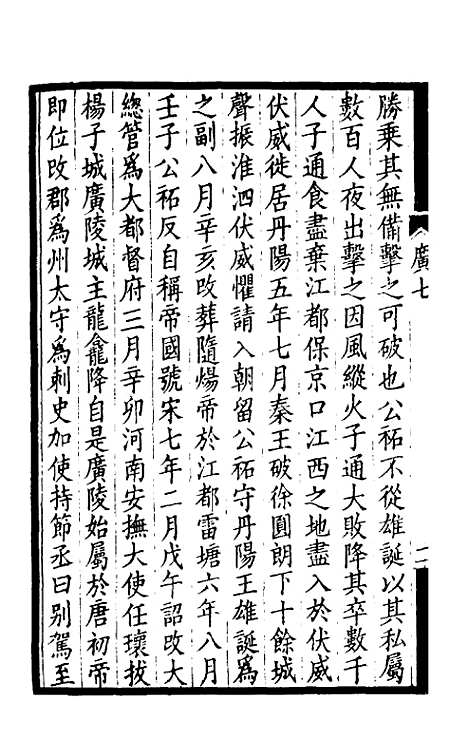 勝乗其無備擊之可破也公祏不從雄誕以其私屬
數百人夜出擊之因風縱火子通大敗降其卒數千
人子通食盡棄江都保京口江西之地盡入於伏威
伏威徙居丹陽五年七月秦王破徐圓朗下十餘城
聲振淮泗伏威懼請入朝留公祏守丹陽王雄誕爲
之副八月辛亥改葬隨煬帝於江都雷塘六年八月
壬子公祏反自稱帝國號宋七年二月戊午詔改大
總管爲大都督府三月辛卯河南安撫大使任瓌拔
楊子城廣陵城主龍龕降自是廣陵始屬於唐初帝
即位改郡爲州太守爲刺史加使持節丞曰别駕至
廣七
二